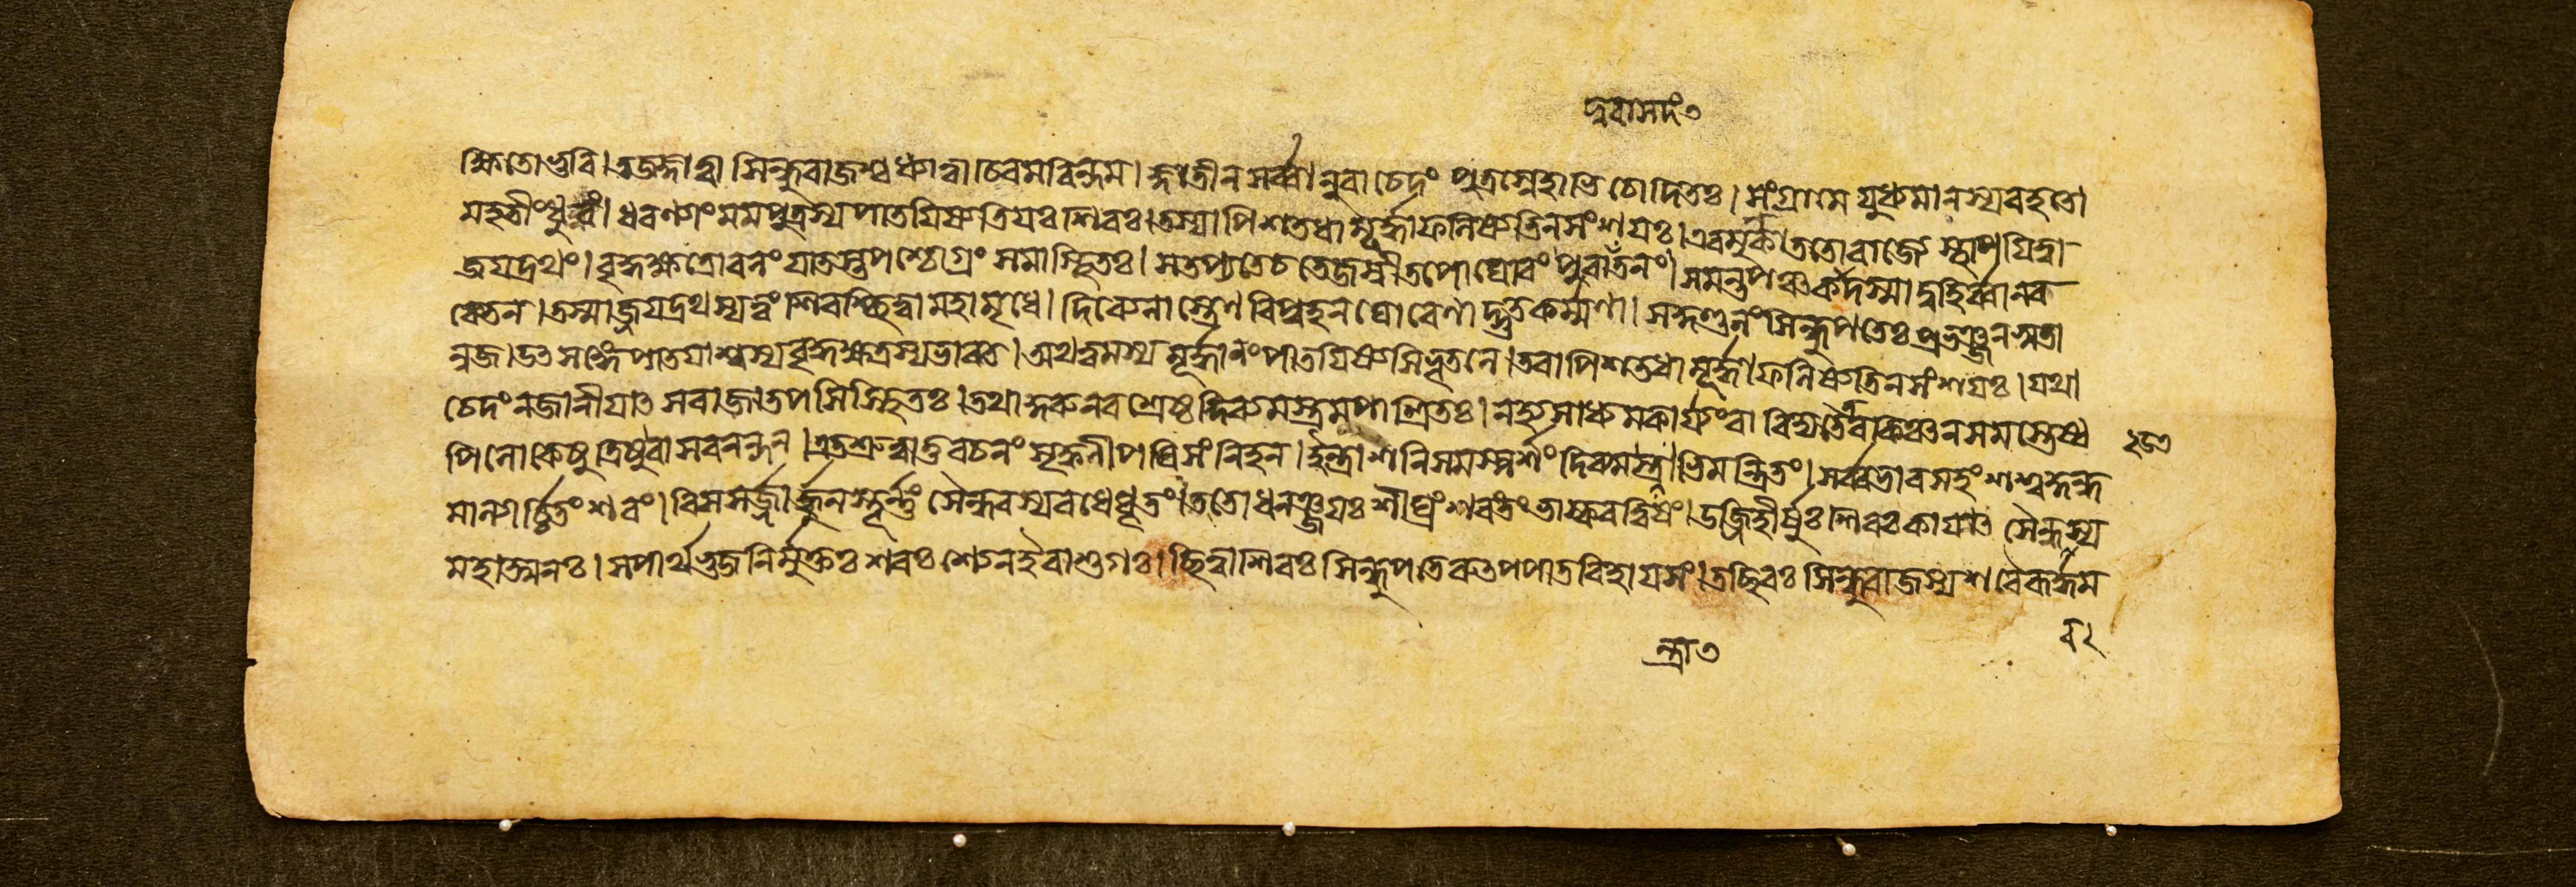 দুরাসদং৩
ক্ষিতোভুবি।তচ্ছ্রুত্বা সিন্ধুরাজশ্চধ্যাত্বাচিরমরিন্দম। জ্ঞাতীনসর্ব্বানুবাচেদং পুত্রস্নেহাভিচোদিতঃ। সংগ্রামে যুধ্যমানস্যবহতো
মহতীংধুরং। ধরণ্যাংমমপুত্রস্যপাতয়িষ্যতিযঃশিরঃ।তস্যাপিশতধামূর্দ্ধাফলিষ্যতিনসংশয়ঃ।এবমুক্ত্বাততোরাজ্যে স্থাপয়িত্বা
জয়দ্রথং। বৃদ্ধক্ষত্রোবনং যাতস্তপশ্চোগ্রং সমাস্থিতঃ। সতপ্যতেচতেজস্বীতপোঘোরং পুরাতনং।সমন্তপঞ্চকাদস্মাদ্বহির্ব্বানর
কেতন।তস্মাজ্জয়দ্রথস্যত্বং শিরশ্ছিত্বামহামৃধে। দিব্যেনাস্ত্রেণ রিপুহনঘোরেণাদ্ভুতকর্ম্মণা। সকুণ্ডলংসিন্ধুপতেঃ প্রভঞ্জনসুতা
নুজ।উৎসঙ্গেপাতয়াশ্বস্যবৃদ্ধক্ষত্রস্যভারত। অথত্বমস্যমূর্দ্ধানংপাতয়িষ্যসিভূতলে।তবাপিশতধামূর্দ্ধাফলিষ্যতিনসংশয়ঃ।যথা
চেদংনজানীয়াৎ সরাজাতপসিস্থিতঃ।তথা দিব্যমস্ত্রমুপাশ্রিতঃ। নহ্যসাধ্যমকার্য্যংবা কিঞ্চনসমস্তেষ্ব
পিলোকেষুত্রিষুবাসবনন্দন।এতচ্ছ্রুত্বাতুবচনং সৃক্কণীপরিসংলিহন।ইন্দ্রাশনিসমস্পর্শং দিব্যমন্ত্রাভিমন্ত্রিতং।সর্ব্বভারসহংশশ্বদ্গন্ধ
মাল্যার্চ্চিতংশরং।বিসসর্জ্জার্জ্জুনস্তূর্ণ্ণং সৈন্ধবস্যবধেধৃতং।ততোধনঞ্জয়ঃ শীঘ্রংশরংতংভাস্করত্বিষং।উজ্জিহীর্ষুঃশিরঃকায়াৎ সৈন্ধবস্য
মহাত্মনঃ। সপার্থভুজনির্মুক্তঃ শরঃশ্যেনইবাশুগঃ।ছিত্বাশিরঃসিন্ধুপতেরুৎপপাতবিহায়সং।তচ্ছিরঃ সিন্ধুরাজস্য
ন্ত্রা৩